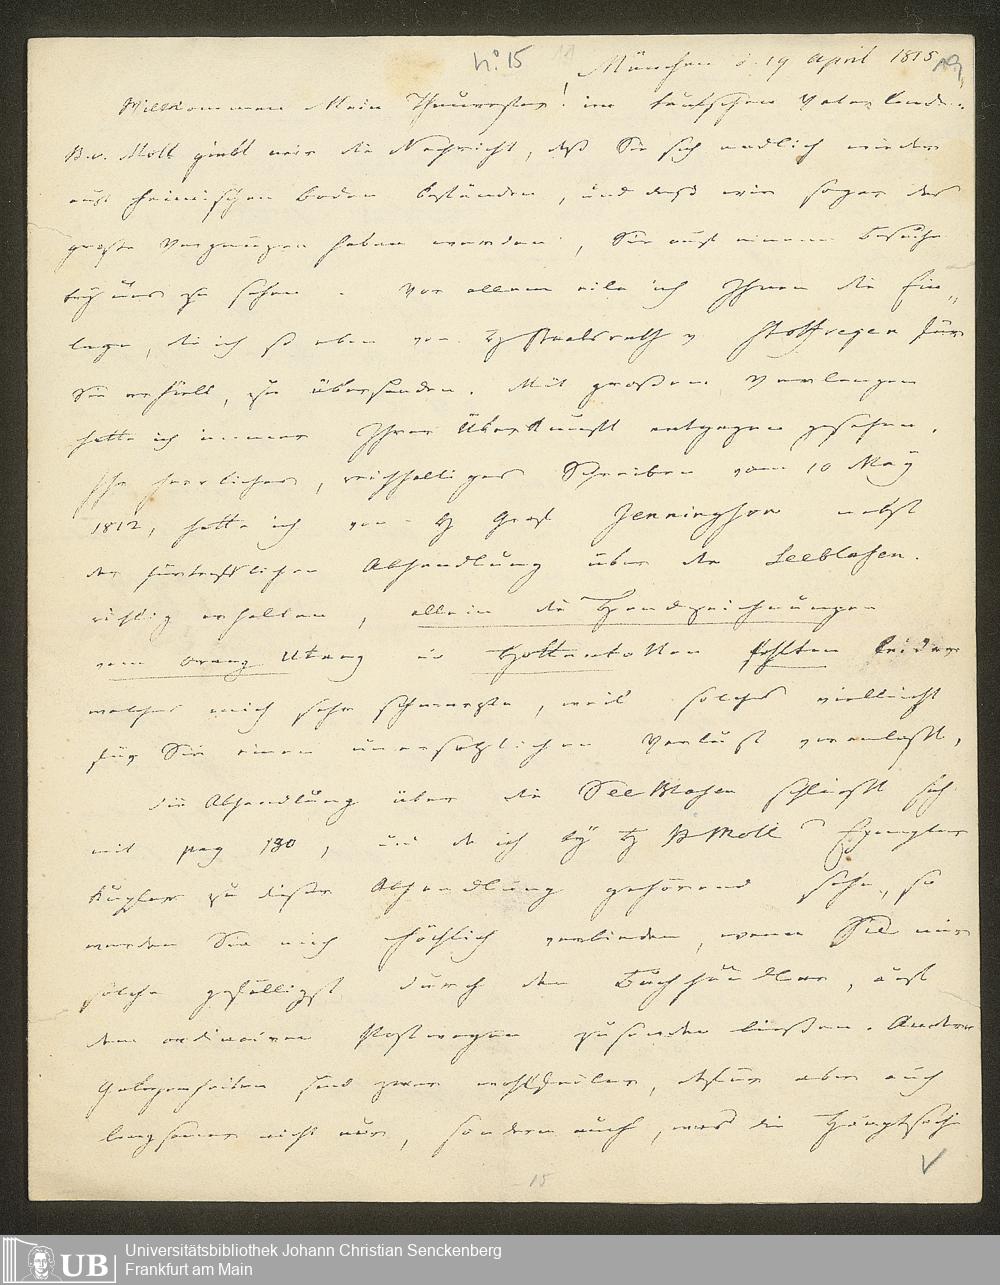 No 15
München d. 19 April 1815
Willkommen Mein Theuerster! im teutschen Vaterlande.
B. v. Moll giebt mir die Nachricht, daß Sie sich endlich wieder
auf heimischen Boden befänden, und daß wir sogar das
große Vergnügen haben werden, Sie auf einem Besuche
bey uns zu sehen. Vor allem eile ich Ihnen die Ein„
lage, die ich so eben von H Staatsrath v. Stoffregen für
Sie erhielt, zu übersenden. Mit großem Verlangen
hatte ich immer Ihrer Überkunft entgegen gesehen.
Ihr herrliches, reichhaltiges Schreiben vom 10 May
1812, hatte ich von H Graf Jenningson nebst
der fürtrefflichen Abhandlung über die Seeblasen
richtig erhalten, allein die Handzeichnungen
vom Orang Utang und Hottentotten fehlten leider
welches mich sehr schmerzte, weil solches vielleicht
für Sie einen unersetzlichen Verlust veranlaßt,
Die Abhandlung über die See Blasen schließt sich
mit pag 180, und da ich by H B Moll Exemplar
Kupfer zu dieser Abhandlung gehörend sehe, so
werden Sie mich höchlich verbinden, wenn Sie mir
solche gefälligst durch den Buchhändler, auf
dem ordinairen Postwagen zusenden ließen. Andere
Gelegenheiten sind zwar wohlfeiler, dafür aber auch
langsamer nicht nur, sondern auch, was die Hauptsache
15
Universitätsbibliothek Johann Christian Senckenberg
Frankfurt am Main
UB